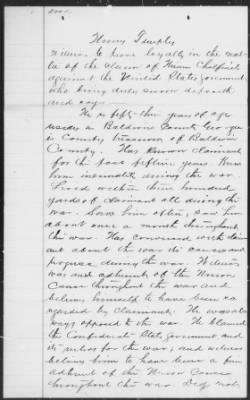 Henry Temples
Witness to prove loyalty in the mat-
ter of the claim of Hiram Chalfinch
against the United States government
who being duly sworn deposeth
and says
He is fifty three years of age
resides in Baldwin County Georgia
is County treasurer of Baldwin
County. Has known claimant
for the past fifteen years. Knew
him intimately during the war.
Lived within three hundred
yards of claimant all during the
war. Saw him often, saw him
about once a month throughout
the war. Has conversed with claim
ant about the war its causes and
progress during the war. Witness
was an adherent of the Union
Cause throughout the war and
believes himself to have been so
regarded by claimant. He was al-
ways opposed to the war. He blamed
the Confederate States government and
its rulers for the war, and witness
believes him to have been a firm
adherent of the Union Cause
throughout the war.